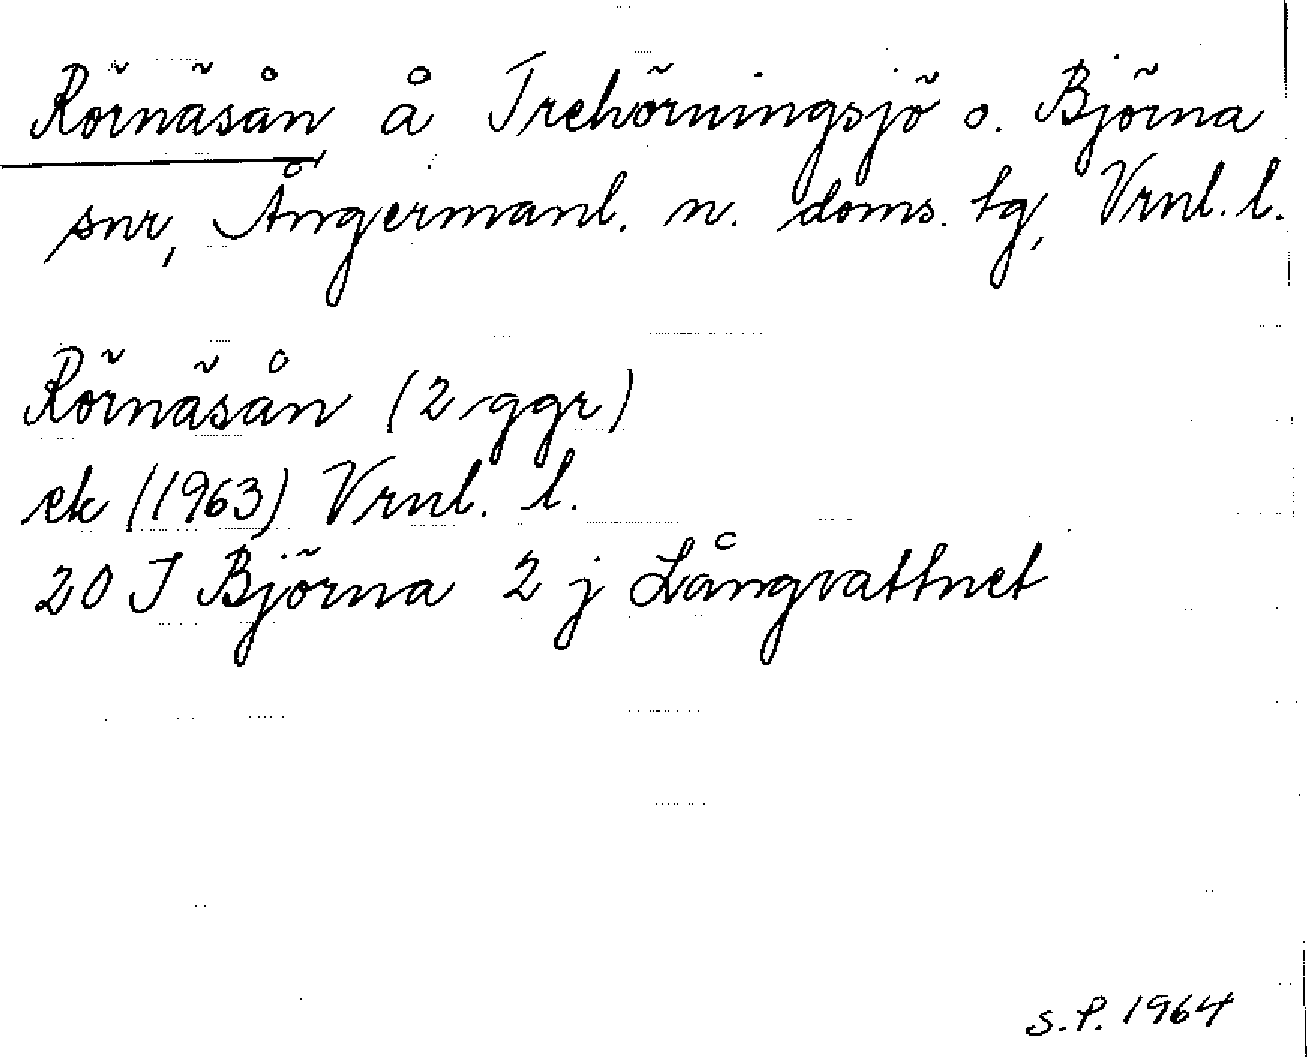 Rörnäsån å Trehörningsjö o. Björna
snr, Ångermanl. n. doms. tg, Vrnl. l.
Rörnäsån (2 ggr)
ek (1963) Vrnl. l.
20 J Björna 2 j Långvattnet
S.P. 1964